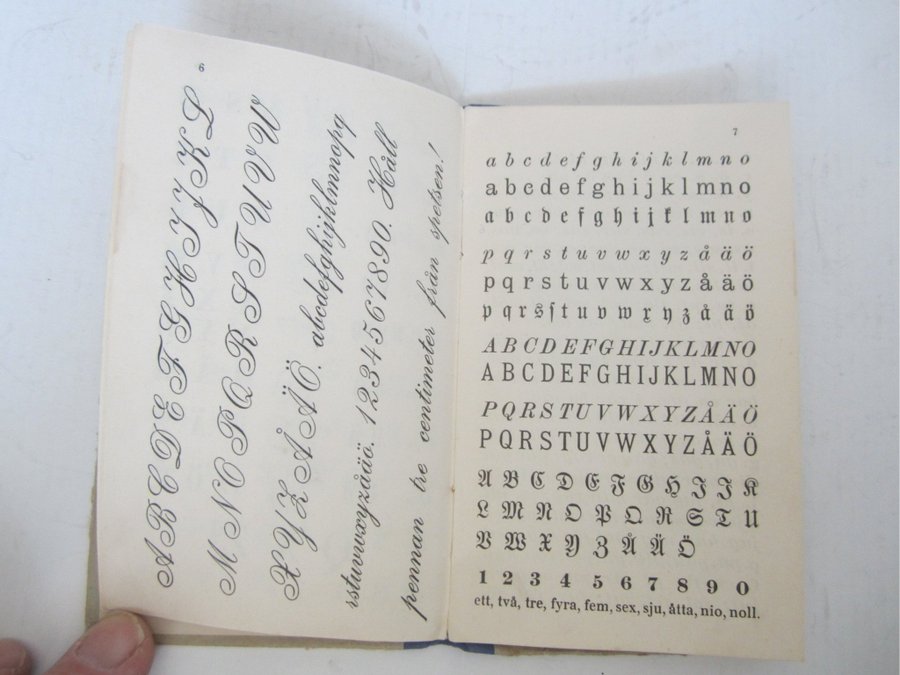 6
A B C D E F G H I J K L
M N O P Q R S T U V W
X Y Z Å Ä Ö. abcdefghijklmnopq
rstuvwxyzåäö. 1234567890. Håll
pennan tre centimeter från spetsen!
7
a b c d e f g h i j k l m n o
a b c d e f g h i j k l m n o
a b c d e f g h i j k l m n o
p q r s t u v w x y z å ä ö
p q r s t u v w x y z å ä ö
p q r s ſ t u v w x y z å ä ö
A B C D E F G H I J K L M N O
A B C D E F G H I J K L M N O
P Q R S T U V W X Y Z Å Ä Ö
P Q R S T U V W X Y Z Å Ä Ö
A B C D E F G H I J K
L M N O P Q R S T U
V W X Y Z Å Ä Ö
1 2 3 4 5 6 7 8 9 0
ett, två, tre, fyra, fem, sex, sju, åtta, nio, noll.